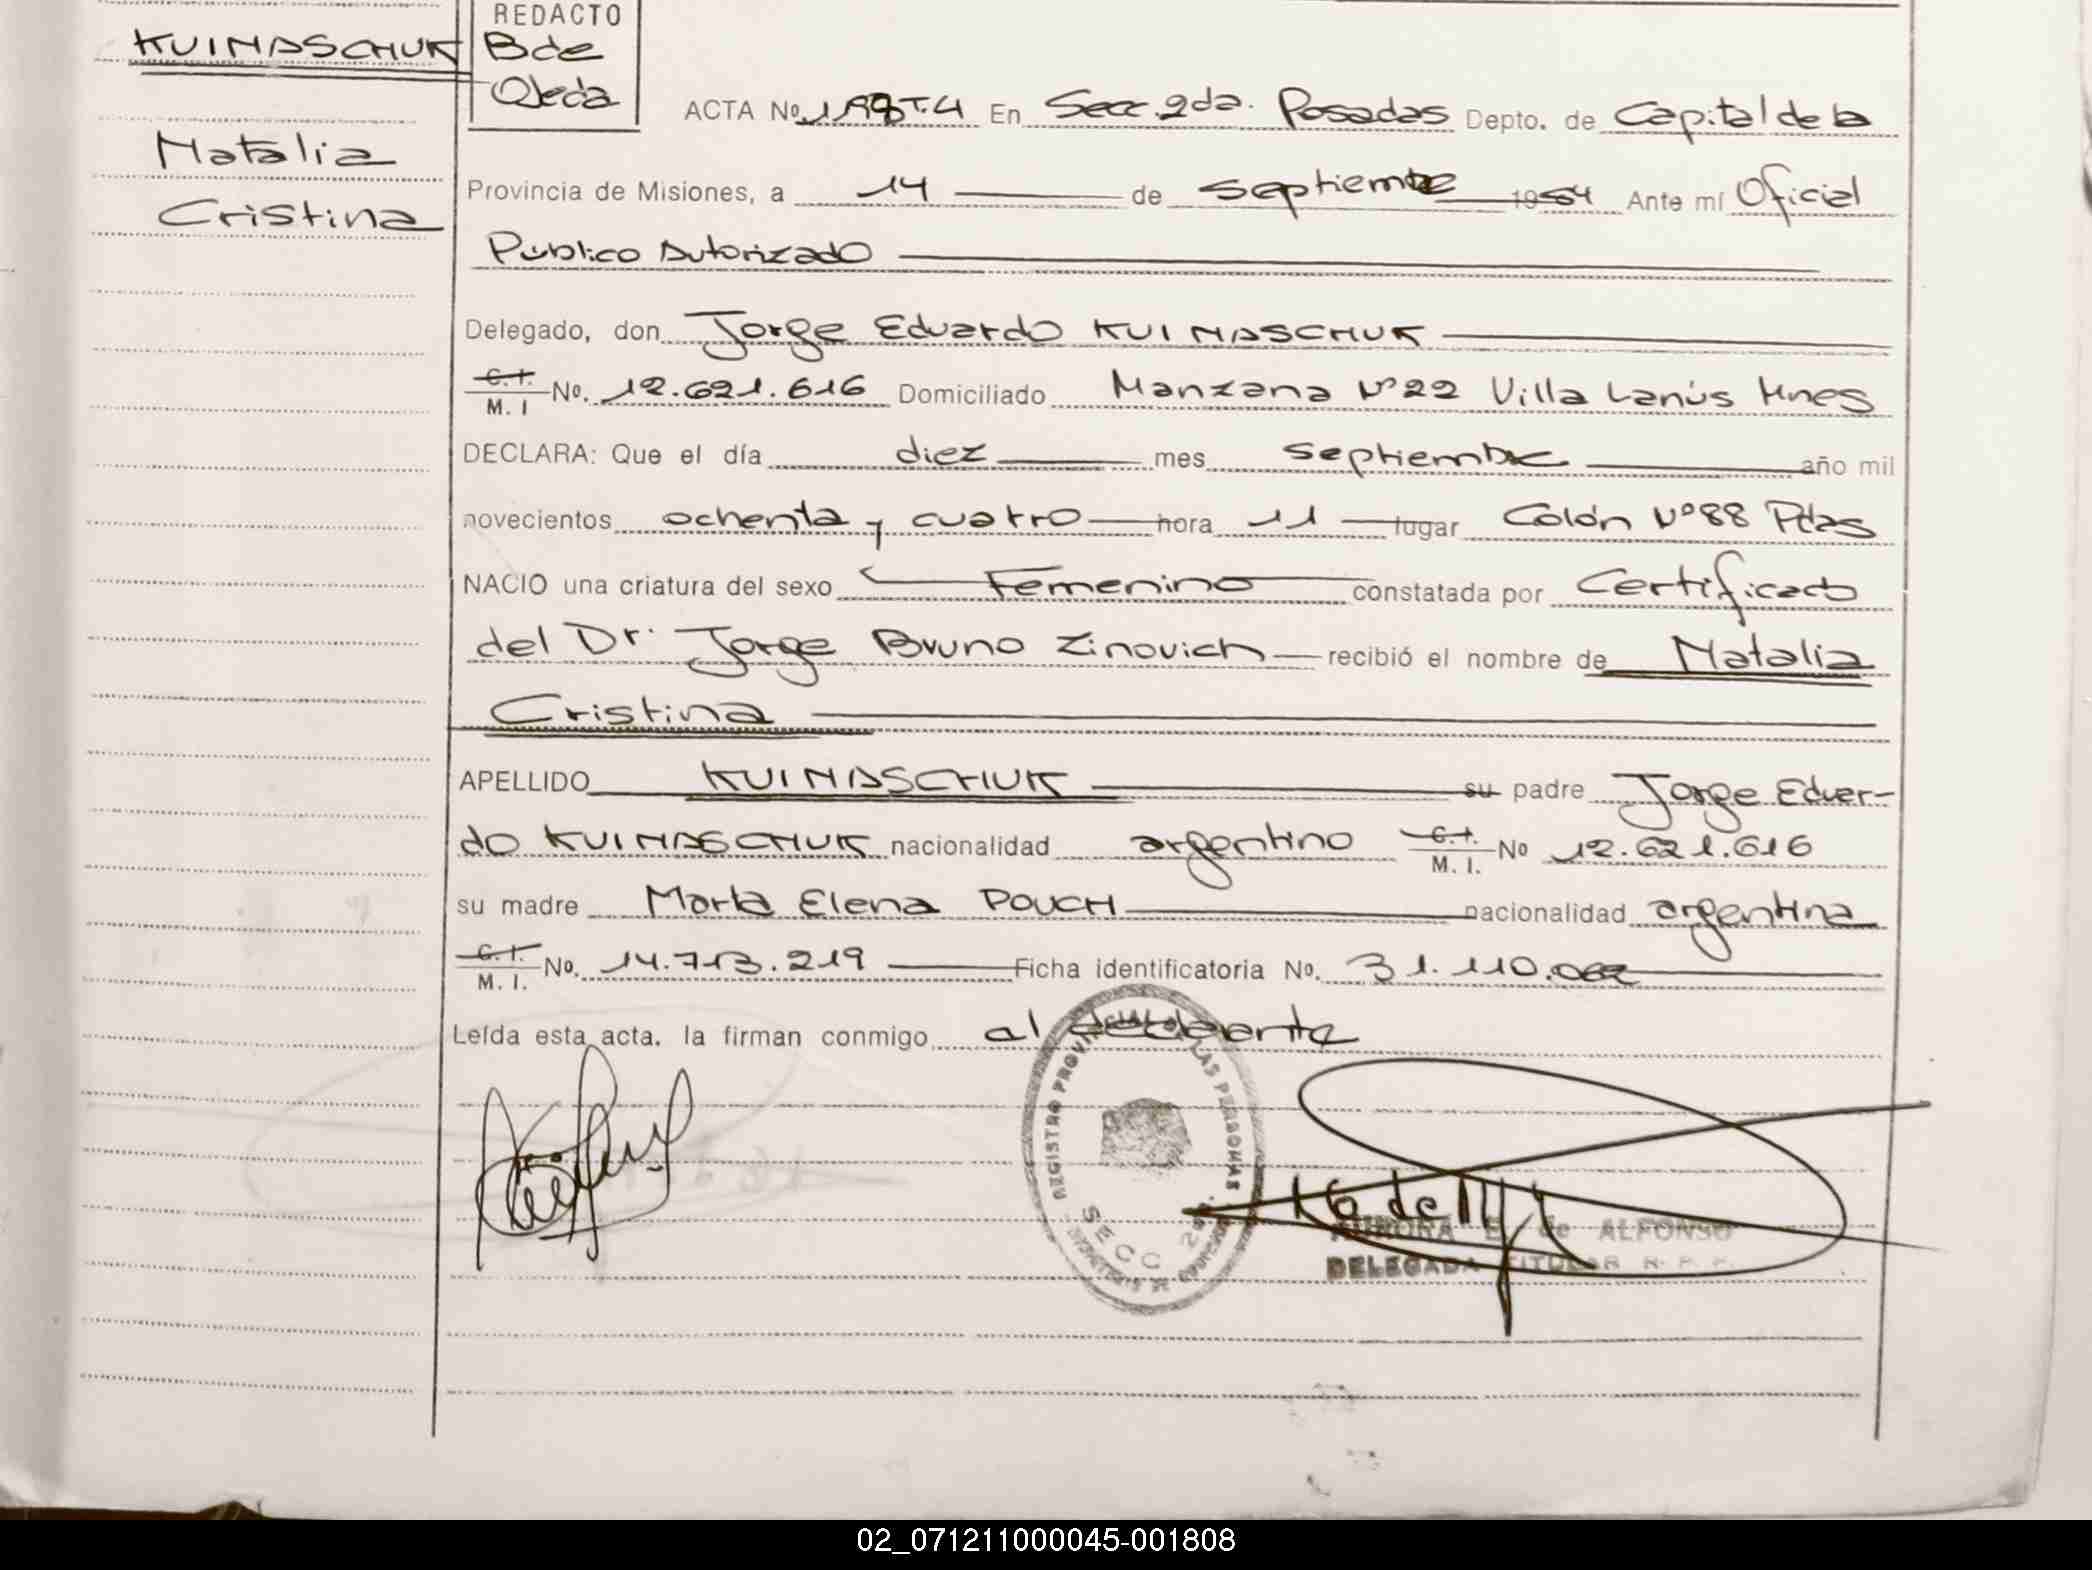 REDACTO
KUINASCHUK
Bde
Ojeda
Natalia
Cristina
ACTA Nº 198T.4 En Secc. 2da. Posadas Depto. de Capital de la
Provincia de Misiones, a 14 de septiembre 1984 Ante mí Oficial
Público Autorizado
Delegado, don Jorge Eduardo KUINASCHUK
C.I. M. I Nº. 12.621.616 Domiciliado Manzana Nº22 Villa Lanús Mnes
DECLARA: Que el día diez mes septiembre año mil
novecientos ochenta y cuatro hora 11 lugar Colón Nº88 Pdas
NACIO una criatura del sexo Femenino constatada por Certificado
del Dr. Jorge Bruno Zinovich recibió el nombre de Natalia
Cristina
APELLIDO KUINASCHUK su padre Jorge Eduar-
do KUINASCHUK nacionalidad argentino C.I. M. I. Nº 12.621.616
su madre Marta Elena POUCH nacionalidad argentina
C.I. M. I. Nº. 14.713.219 Ficha identificatoria Nº. 31.110.062
Leída esta acta, la firman conmigo al
REGISTRO PROVINCIAL DE LAS PERSONAS
SECC 2da.
AURORA E. de ALFONSO
DELEGADA TITULAR R. P. P.
02_071211000045-001808